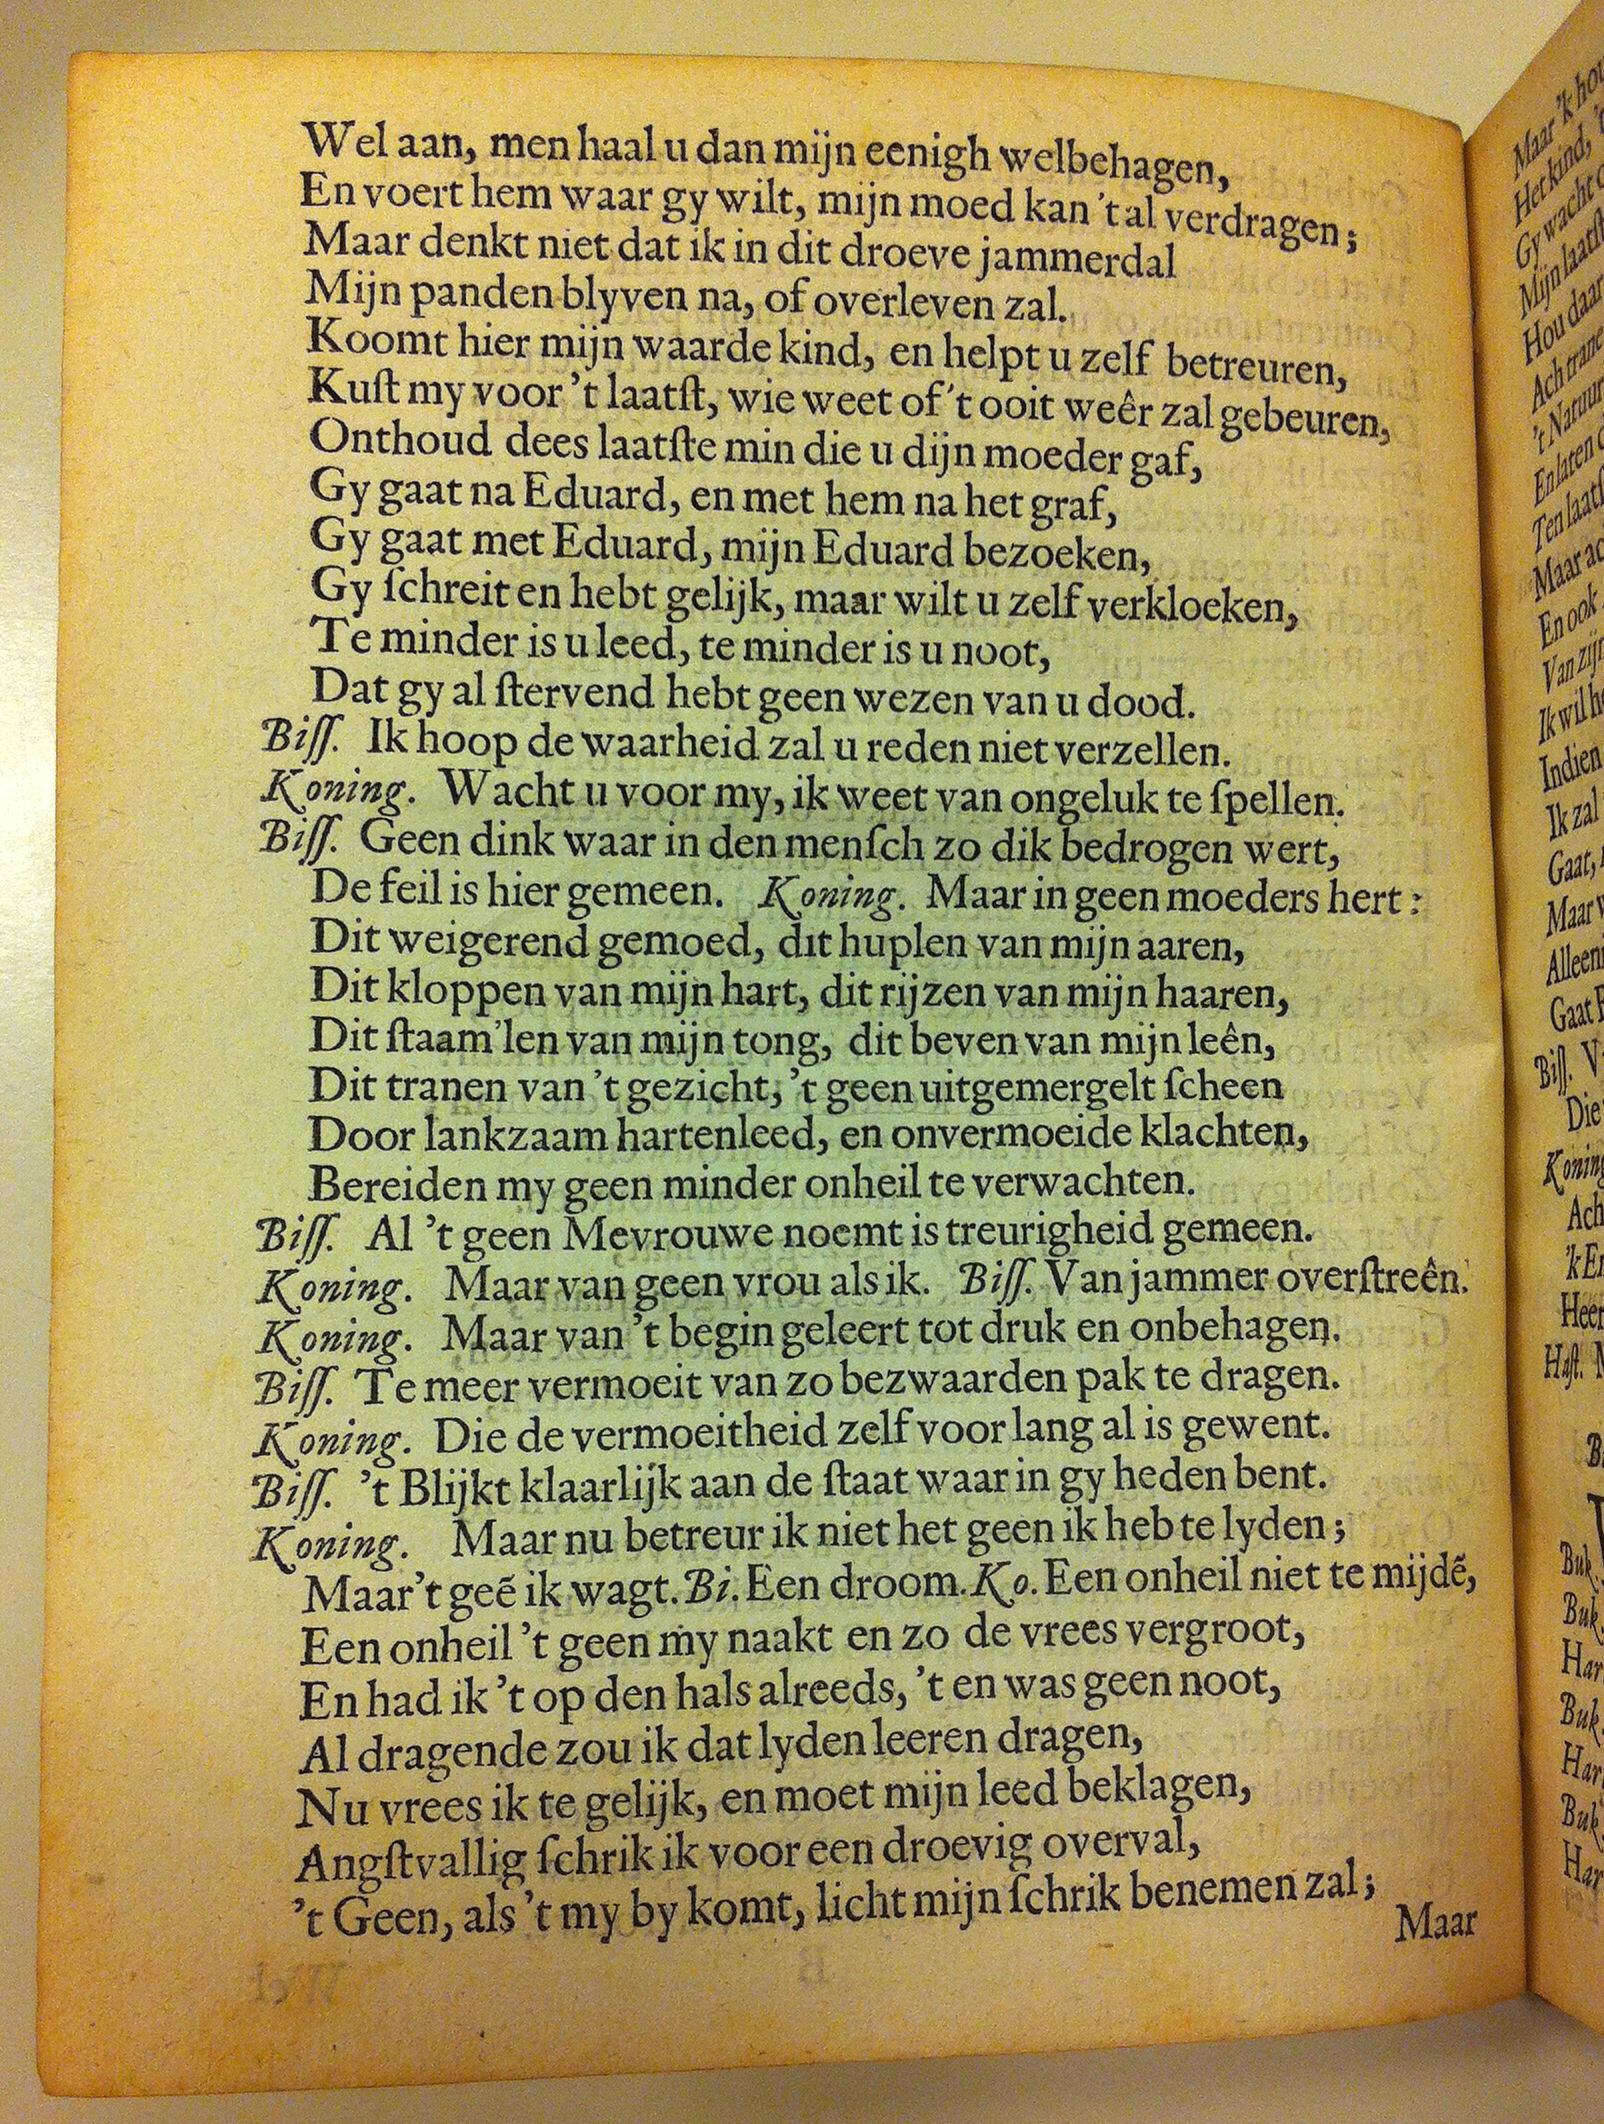 Wel aan, men haal u dan mijn eenigh welbehagen,
En voert hem waar gy wilt, mijn moed kan 't al verdragen;
Maar denkt niet dat ik in dit droeve jammerdal
Mijn panden blyven na, of overleven zal.
Koomt hier mijn waarde kind, en helpt u zelf betreuren,
Kuſt my voor 't laatſt, wie weet of 't ooit weêr zal gebeuren,
Onthoud dees laatſte min die u dijn moeder gaf,
Gy gaat na Eduard, en met hem na het graf,
Gy gaat met Eduard, mijn Eduard bezoeken,
Gy ſchreit en hebt gelijk, maar wilt u zelf verkloeken,
Te minder is u leed, te minder is u noot,
Dat gy al ſtervend hebt geen wezen van u dood.
Biſſ. Ik hoop de waarheid zal u reden niet verzellen.
Koning. Wacht u voor my, ik weet van ongeluk te ſpellen.
Biſſ. Geen dink waar in den menſch zo dik bedrogen wert,
De feil is hier gemeen. Koning. Maar in geen moeders hert:
Dit weigerend gemoed, dit huplen van mijn aaren,
Dit kloppen van mijn hart, dit rijzen van mijn haaren,
Dit ſtaam'len van mijn tong, dit beven van mijn leên,
Dit tranen van 't gezicht, 't geen uitgemergelt ſcheen
Door lankzaam hartenleed, en onvermoeide klachten,
Bereiden my geen minder onheil te verwachten.
Biſſ. Al 't geen Mevrouwe noemt is treurigheid gemeen.
Koning. Maar van geen vrou als ik. Biſſ. Van jammer overſtreên.
Koning. Maar van 't begin geleert tot druk en onbehagen.
Biſſ. Te meer vermoeit van zo bezwaarden pak te dragen.
Koning. Die de vermoeitheid zelf voor lang al is gewent.
Biſſ. 't Blijkt klaarlijk aan de ſtaat waar in gy heden bent.
Koning. Maar nu betreur ik niet het geen ik heb te lyden;
Maar 't geẽ ik wagt. Bi. Een droom. Ko. Een onheil niet te mijdẽ,
Een onheil 't geen my naakt en zo de vrees vergroot,
En had ik 't op den hals alreeds, 't en was geen noot,
Al dragende zou ik dat lyden leeren dragen,
Nu vrees ik te gelijk, en moet mijn leed beklagen,
Angſtvallig ſchrik ik voor een droevig overval,
't Geen, als 't my by komt, licht mijn ſchrik benemen zal;
Maar
Maar 'k hou
Het kind,
Gy wacht
Mijn laatſt
Hou daar
Ach trane
't Natuur
En laten
Ten laatſ
Maar ac
En ook
Van zijn
Ik wil h
Indien
Ik zal
Gaat,
Maar
Alleen
Gaat
Biſſ.
Die
Koning
Ach
'k En
Heer
Haſt.
Buk.
Buk.
Har
Buk.
Har
Buk.
Har